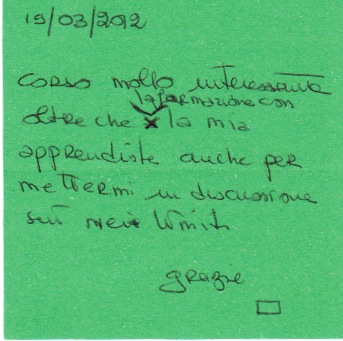 19/03/2012
corso molto interessante
la formazione con
oltre che x la mia
apprendista anche per
mettermi in discussione
sui miei limiti
grazie